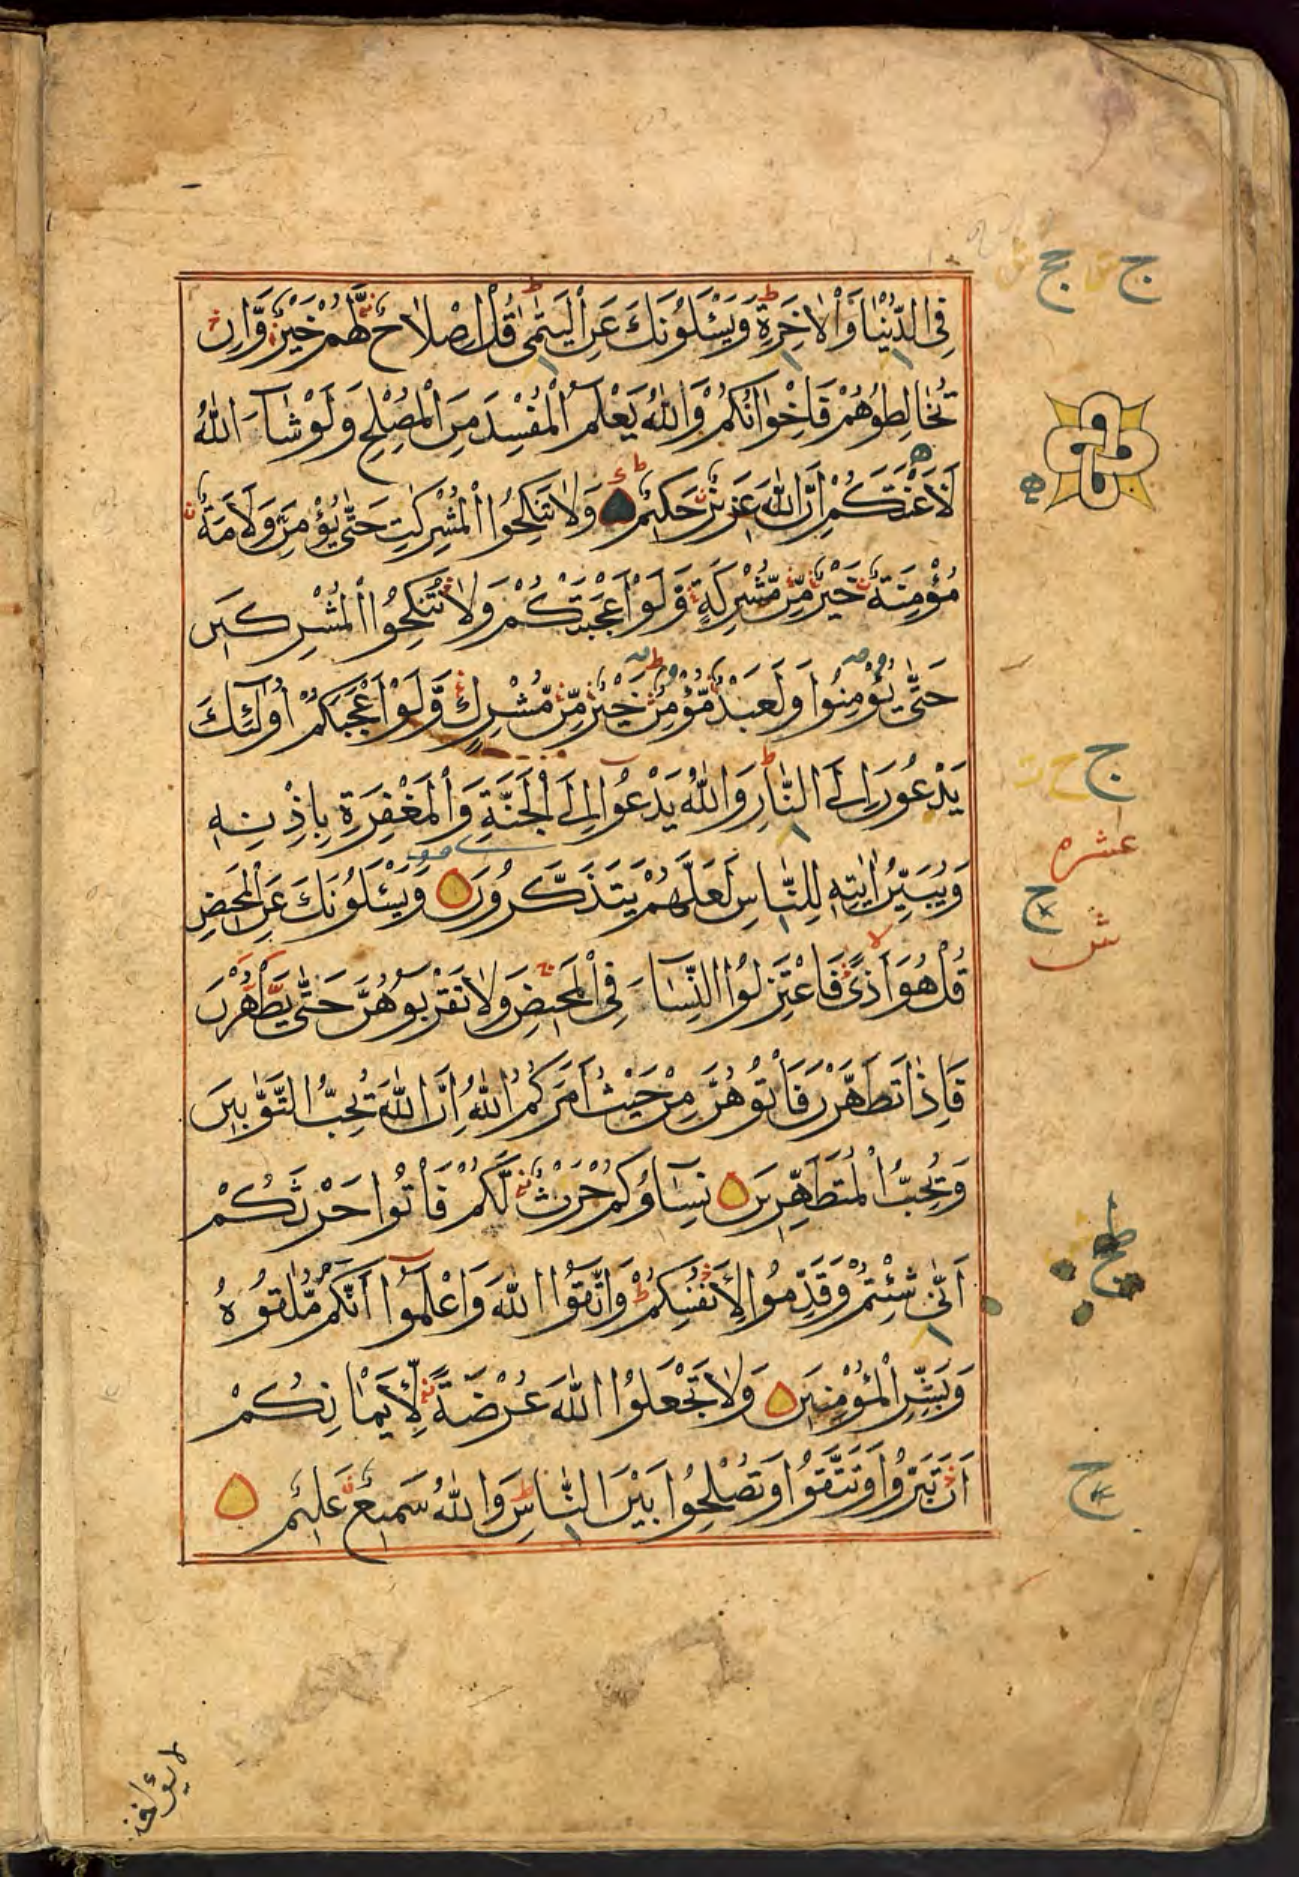 فِى الدُّنْيَا وَالْاٰخِرَةِ ط وَيَسْـَٔلُوْنَكَ عَنِ الْيَتٰمٰى ط قُلْ اِصْلَاحٌ لَّهُمْ خَيْرٌ وَّاِنْ
تُخَالِطُوْهُمْ فَاِخْوَانُكُمْ وَاللّٰهُ يَعْلَمُ الْمُفْسِدَ مِنَ الْمُصْلِحِ وَلَوْ شَآءَ اللّٰهُ
لَاَعْنَتَكُمْ اِنَّ اللّٰهَ عَزِيْزٌ حَكِيْمٌ وَلَا تَنْكِحُوا الْمُشْرِكٰتِ حَتّٰى يُؤْمِنَّ وَلَاَمَةٌ
مُؤْمِنَةٌ خَيْرٌ مِّنْ مُّشْرِكَةٍ وَّلَوْ اَعْجَبَتْكُمْ وَلَا تُنْكِحُوا الْمُشْرِكِيْنَ
حَتّٰى يُؤْمِنُوْا وَلَعَبْدٌ مُّؤْمِنٌ خَيْرٌ مِّنْ مُّشْرِكٍ وَّلَوْ اَعْجَبَكُمْ اُولٰٓئِكَ
يَدْعُوْنَ اِلَى النَّارِ ط وَاللّٰهُ يَدْعُوْٓا اِلَى الْجَنَّةِ وَالْمَغْفِرَةِ بِاِذْنِهٖ
وَيُبَيِّنُ اٰيٰتِهٖ لِلنَّاسِ لَعَلَّهُمْ يَتَذَكَّرُوْنَ وَيَسْـَٔلُوْنَكَ عَنِ الْمَحِيْضِ
قُلْ هُوَ اَذًى فَاعْتَزِلُوا النِّسَآءَ فِى الْمَحِيْضِ وَلَا تَقْرَبُوْهُنَّ حَتّٰى يَطْهُرْنَ
فَاِذَا تَطَهَّرْنَ فَاْتُوْهُنَّ مِنْ حَيْثُ اَمَرَكُمُ اللّٰهُ اِنَّ اللّٰهَ يُحِبُّ التَّوَّابِيْنَ
وَيُحِبُّ الْمُتَطَهِّرِيْنَ نِسَآؤُكُمْ حَرْثٌ لَّكُمْ فَاْتُوْا حَرْثَكُمْ
اَنّٰى شِئْتُمْ وَقَدِّمُوْا لِاَنْفُسِكُمْ ط وَاتَّقُوا اللّٰهَ وَاعْلَمُوْٓا اَنَّكُمْ مُّلٰقُوْهُ
وَبَشِّرِ الْمُؤْمِنِيْنَ وَلَا تَجْعَلُوا اللّٰهَ عُرْضَةً لِّاَيْمَانِكُمْ
اَنْ تَبَرُّوْا وَتَتَّقُوْا وَتُصْلِحُوْا بَيْنَ النَّاسِ ط وَاللّٰهُ سَمِيْعٌ عَلِيْمٌ
ج ج
ج
عشره
ج
ش
لا يؤاخذ